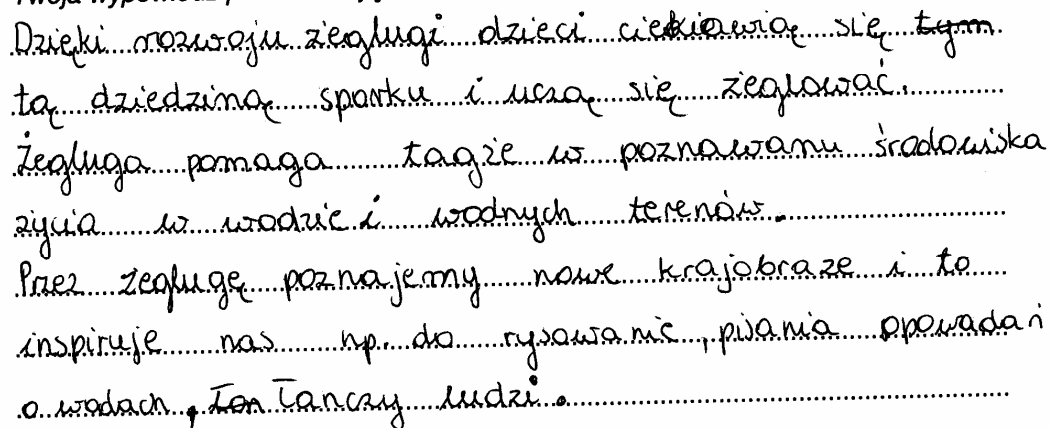 Dzięki rozwoju żeglugi dzieci ciekiawią się tym
tą dziedziną sparku i uczą się żeglować.
Żegluga pomaga tagże w poznawanu środowiska
życia w wodzie i wodnych terenów.
Przez żeglugę poznajemy nowe krajobraze i to
inspiruje nas np. do rysowanie, pisania opowadań
o wodach, Łon Łanczy ludzi.